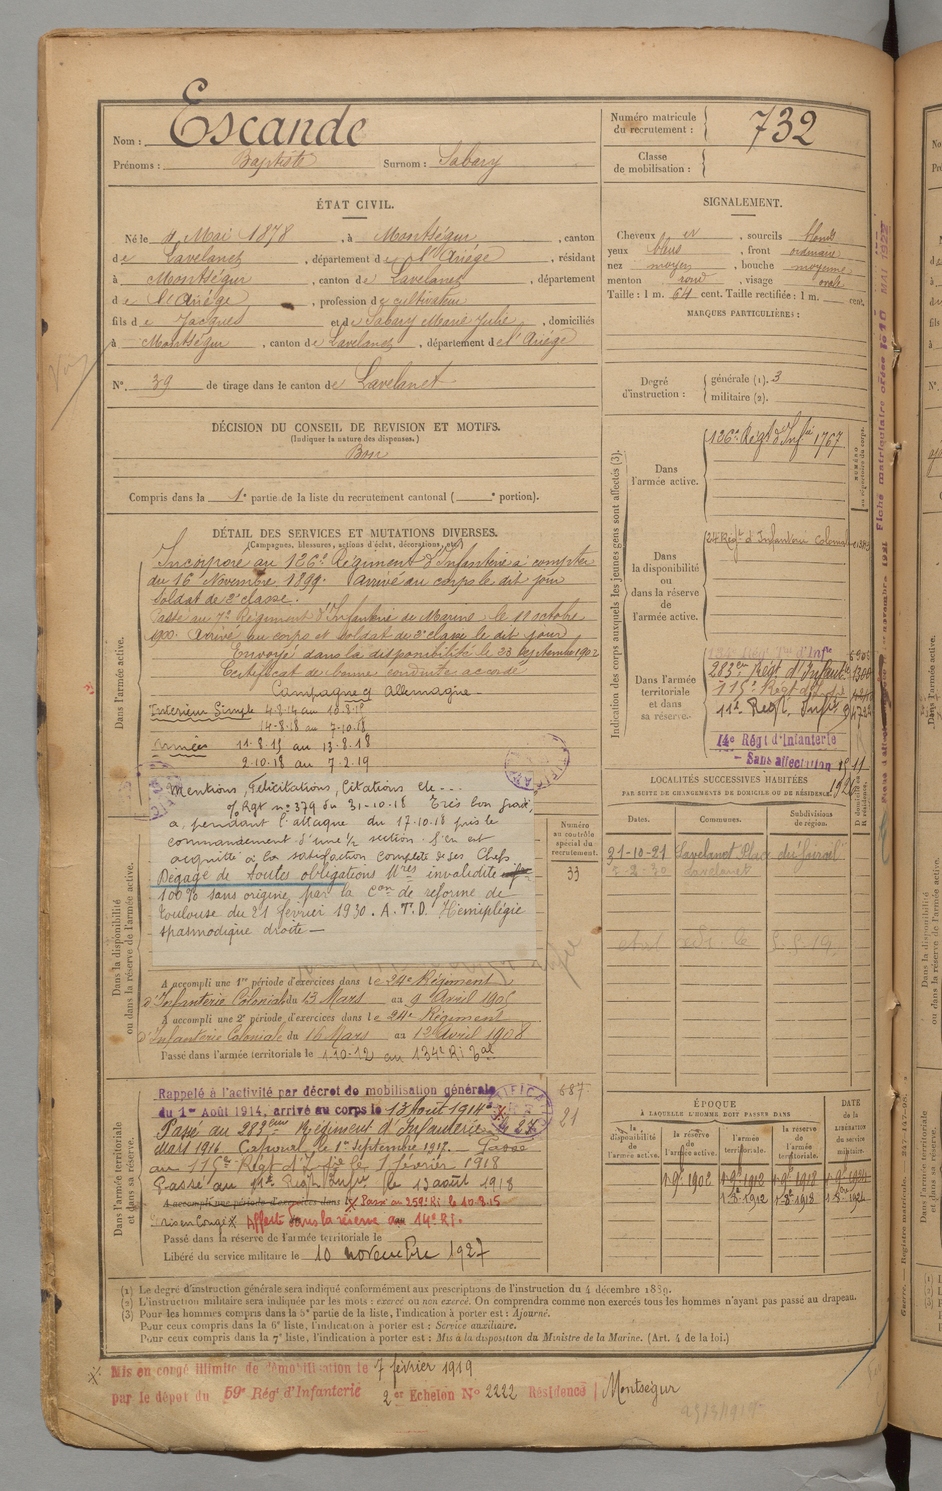 Nom : Escande
Prénoms : Baptiste Surnom : Sabary
Numéro matricule du recrutement : 732
Classe de mobilisation :
ÉTAT CIVIL.
Né le 4 Mai 1878, à Montségur, canton
de Lavelanet, département de l'Ariège, résidant
à Montségur, canton de Lavelanet, département
de l'Ariège, profession de cultivateur
fils de Jacques et de Sabary Marie Julie, domiciliés
à Montségur, canton de Lavelanet, département de l'Ariège
N°. 39 de tirage dans le canton de Lavelanet
SIGNALEMENT.
Cheveux , sourcils blonds
yeux bleus, front ordinaire
nez moyen, bouche moyenne
menton rond, visage ovale
Taille : 1 m. 64 cent. Taille rectifiée : 1 m. cent.
MARQUES PARTICULIÈRES :
Degré d'instruction : générale (1). 3
militaire (2).
DÉCISION DU CONSEIL DE REVISION ET MOTIFS.
(Indiquer la nature des dispenses.)
Bon
Compris dans la 1e partie de la liste du recrutement cantonal ( e portion).
DÉTAIL DES SERVICES ET MUTATIONS DIVERSES.
(Campagnes, blessures, actions d'éclat, décorations, etc.)
Dans l'armée active.
Incorporé au 126e Régiment d'Infanterie à compter
du 16 Novembre 1899. Arrivé au corps le dit jour
soldat de 2e classe.
Passé au 7e Régiment d'Infanterie de Marine le 11 octobre
1900. Arrivé au corps et soldat de 2e classe le dit jour
Envoyé dans la disponibilité le 23 Septembre 1902
Certificat de bonne conduite accordé
Campagne ct Allemagne
Intérieur Simple 4-8-14 au 10-8-15
14-8-18 au 7-10-18
Armées 11-8-15 au 13-8-18
2-10-18 au 7-2-19
Mentions, Félicitations, Citations etc...
o/ Rgt n° 379 du 31-10-18 Très bon gradé,
a pendant l'attaque du 17-10-18 pris le
commandement d'une 1/2 section. S'en est
acquitté à la satisfaction complète de ses Chefs
Dégagé de toutes obligations Mres invalidité
100% sans origine par la Con de réforme de
Toulouse du 21 février 1930. A.T.D. Hémiplégie
spasmodique droite
Dans la disponibilité ou dans la réserve de l'armée active.
A accompli une 1re période d'exercices dans le 24e Régiment
d'Infanterie Coloniale du 13 Mars au 9 Avril 1905
A accompli une 2e période d'exercices dans le 24e Régiment
d'Infanterie Coloniale du 16 Mars au 12 Avril 1908
Passé dans l'armée territoriale le 1-10-12 au 134e RI Tal
Dans l'armée territoriale et dans sa réserve.
Rappelé à l'activité par décret de mobilisation générale
du 1er Août 1914, arrivé au corps le 13 Août 1914
Passé au 283eme Régiment d'Infanterie le 25
Mars 1916 Caporal le 1er Septembre 1917. Passé
au 115e Régt d'Infie le 1 février 1918
Passé au 11e Regt Infrie le 13 août 1918
A accompli une période d'exercices dans le X Passé au 259e RI le 10-8-15
mis en Congé X Affecté dans la réserve au 14e RI.
Passé dans la réserve de l'armée territoriale le
Libéré du service militaire le 10 novembre 1927
Numéro au contrôle spécial du recrutement.
33
687
21
Indication des corps auxquels les jeunes gens sont affectés (3).
NUMÉRO au répertoire du corps.
Dans l'armée active.
126e Régt d'Infie 1767
Dans la disponibilité ou dans la réserve de l'armée active.
24 Régt d'Infanterie Coloniale
Dans l'armée territoriale et dans sa réserve.
283eme Régt d'Infanterie
115e Régt d'Infie
11e Regt. Infie
14e Régt d'Infanterie
Sans affectation
1926
LOCALITÉS SUCCESSIVES HABITÉES
PAR SUITE DE CHANGEMENTS DE DOMICILE OU DE RÉSIDENCE.
Dates. Communes. Subdivisions de région. D domicile R résidence.
21-10-21 Lavelanet
Lavelanet
ÉPOQUE
À LAQUELLE L'HOMME DOIT PASSER DANS
DATE de la LIBÉRATION du service militaire.
la disponibilité de l'armée active. la réserve de l'armée active. l'armée territoriale. la réserve de l'armée territoriale.
1 9bre 1902 1 9bre 1912 1 9bre 1918 1 9bre 1924
1 8bre 1912 1 8bre 1918 1 8bre 1924
(1) Le degré d'instruction générale sera indiqué conformément aux prescriptions de l'instruction du 4 décembre 1889.
(2) L'instruction militaire sera indiquée par les mots : exercé ou non exercé. On comprendra comme non exercés tous les hommes n'ayant pas passé au drapeau.
(3) Pour les hommes compris dans la 5e partie de la liste, l'indication à porter est : Ajourné.
Pour ceux compris dans la 6e liste, l'indication à porter est : Service auxiliaire.
Pour ceux compris dans la 7e liste, l'indication à porter est : Mis à la disposition du Ministre de la Marine. (Art. 4 de la loi.)
X Mis en congé illimité de démobilisation le 7 février 1919
par le dépôt du 59e Rég t d'Infanterie 2er Echelon N° 2222 Résidence Montségur